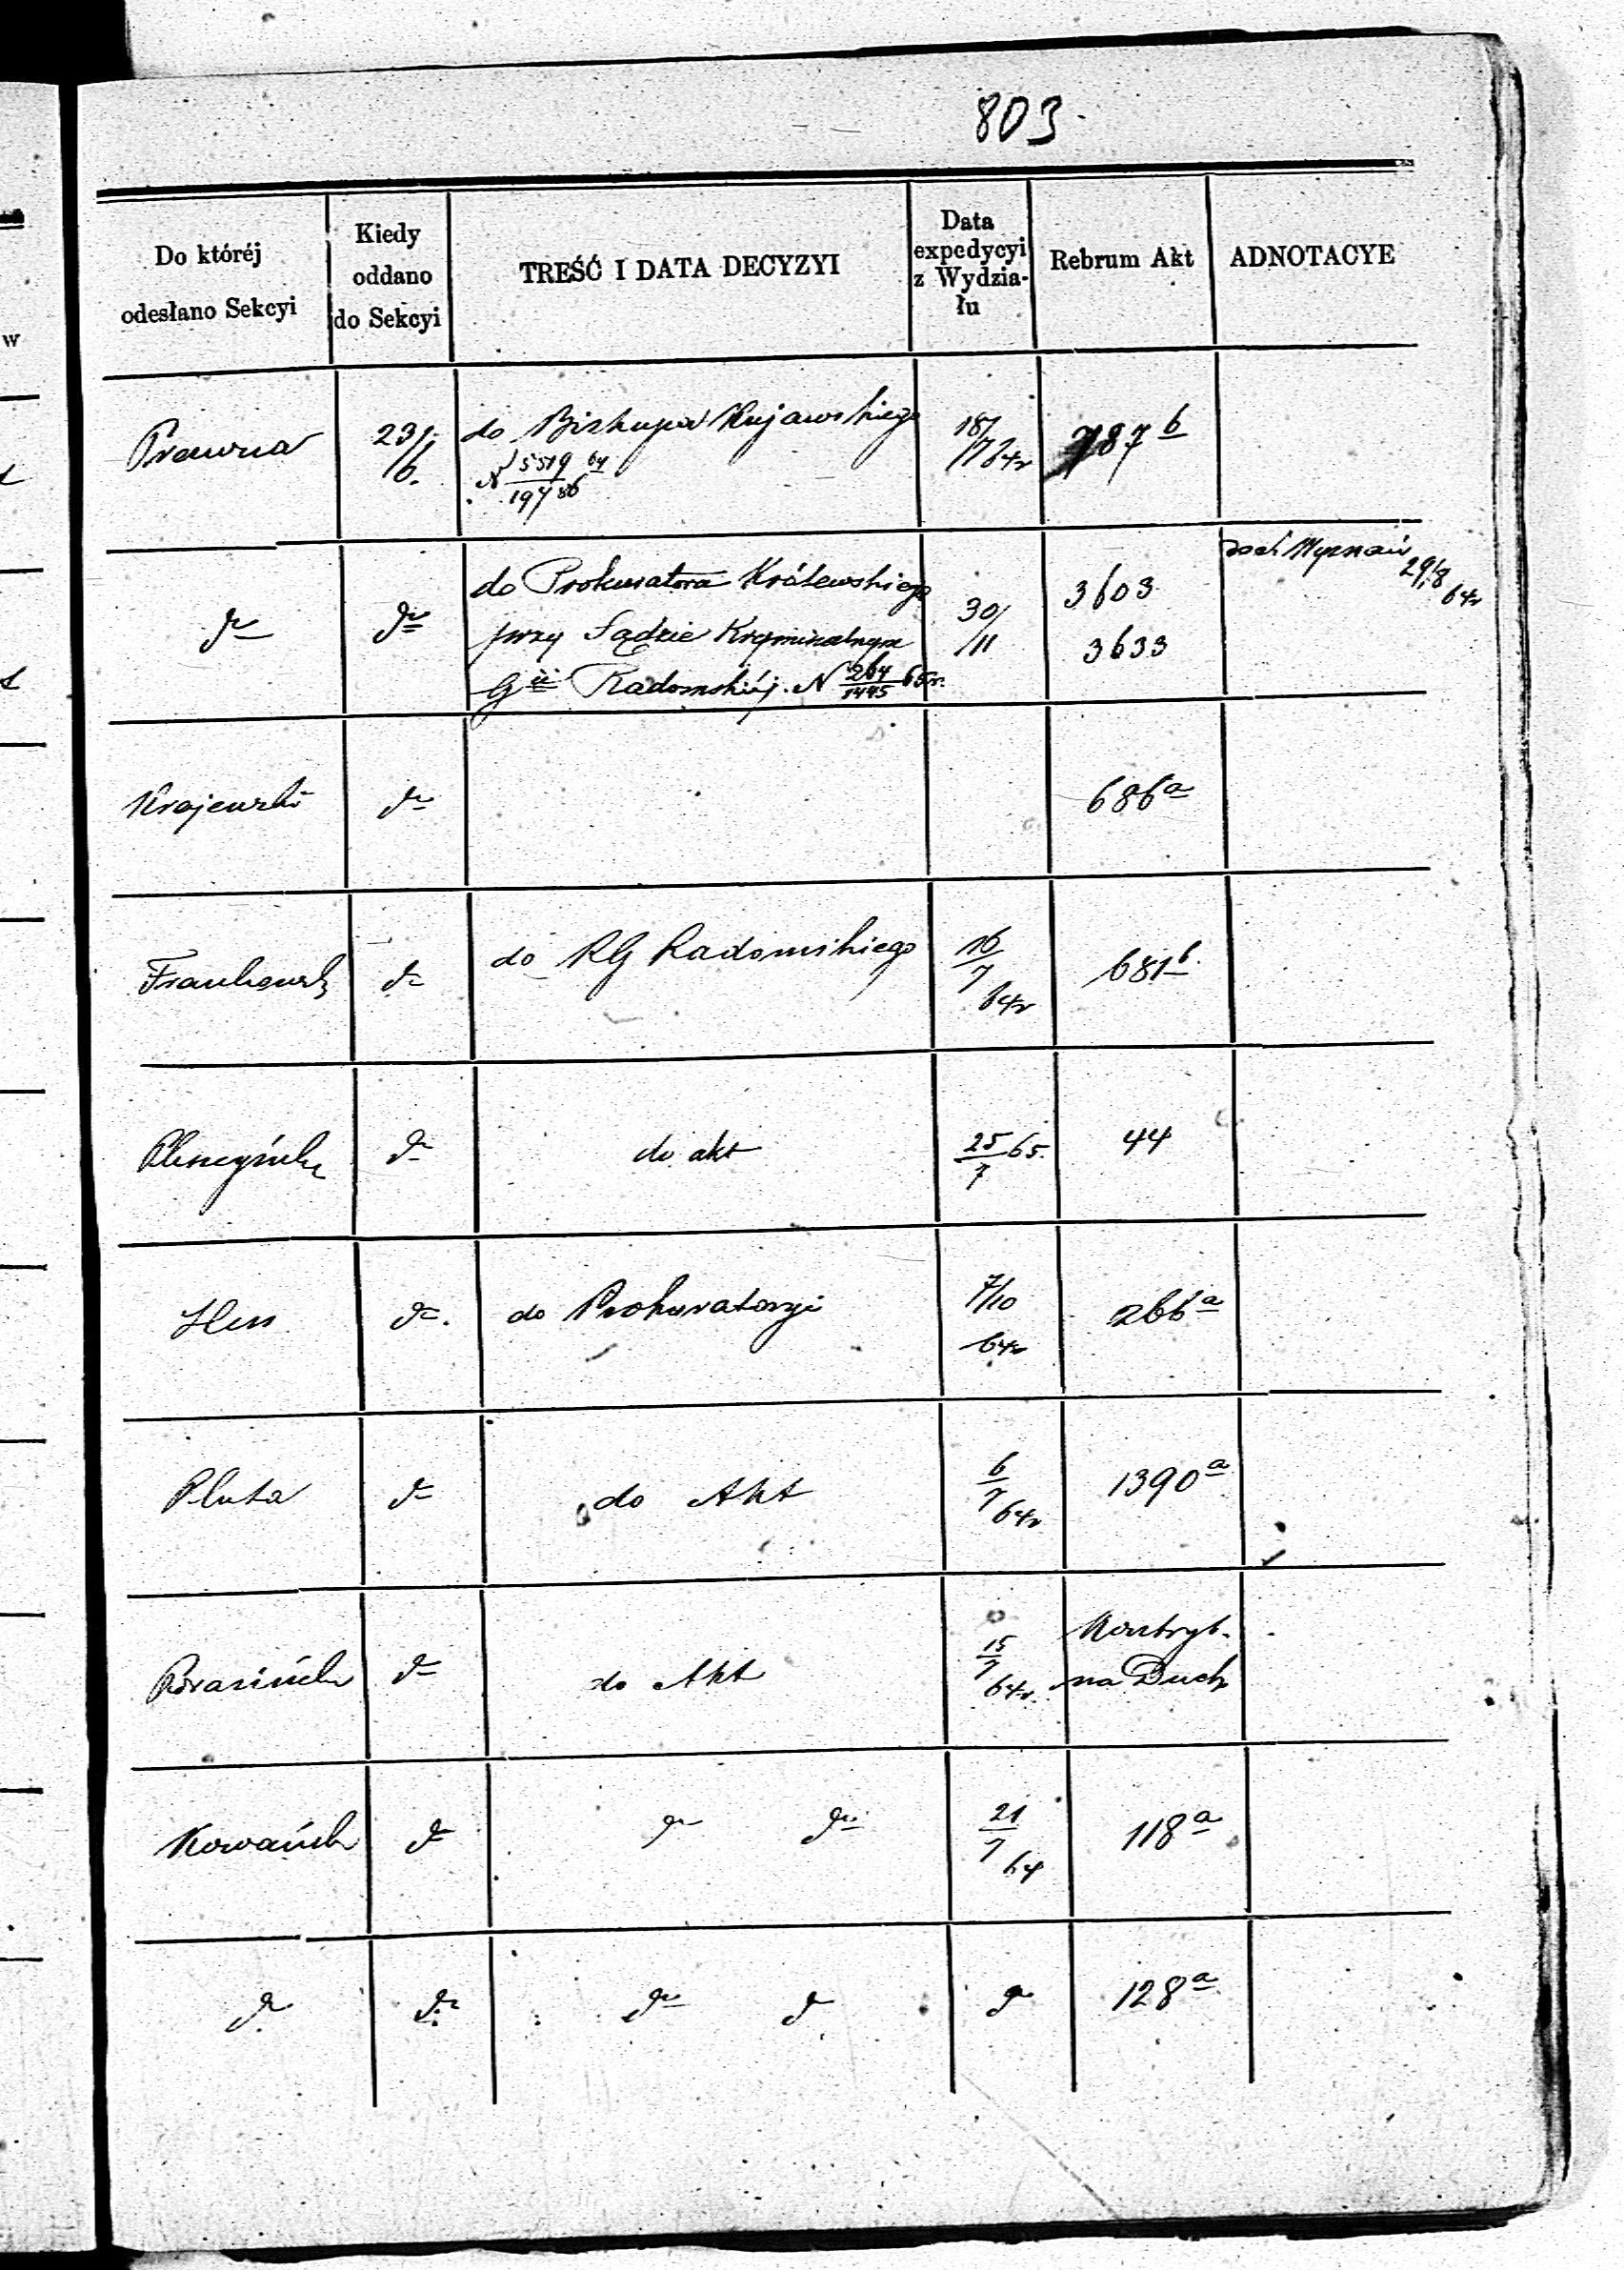 803
Do któréj
odesłano Sekcyi
Kiedy
oddano
do Sekcyi
TREŚĆ I DATA DECYZYI
Data
expedycyi
z Wydzia-
łu
Rebrum Akt
ADNOTACYE
w
Prawna
23/6.
do Biskupa Kujawskiego
N 5519/19786 64
18/7 64r
787 b
dto
dto
do Prokuratora Królewskiego
przy Sądzie Kryminalnym
Gii Radomskiéj. N 264/1445 65r.
30/11
3603
3633
29/8 64r
Krajewski
dto
686 a
Frankowsk
dto
do RG Radomskiego
16/7 64r
681 b.
dto
do akt
25/7 65.
44
Hess
dto.
do Prokuratoryi
7/10
64r
266 a
Pluta
dto
do Akt
6/7 64r
1390 a
dto
do Akt
15/7 64r.
Kontryb.
na Duch
dto
dto dto
21/7 64
118 a
dto
dto
dto dto
dto
128 a